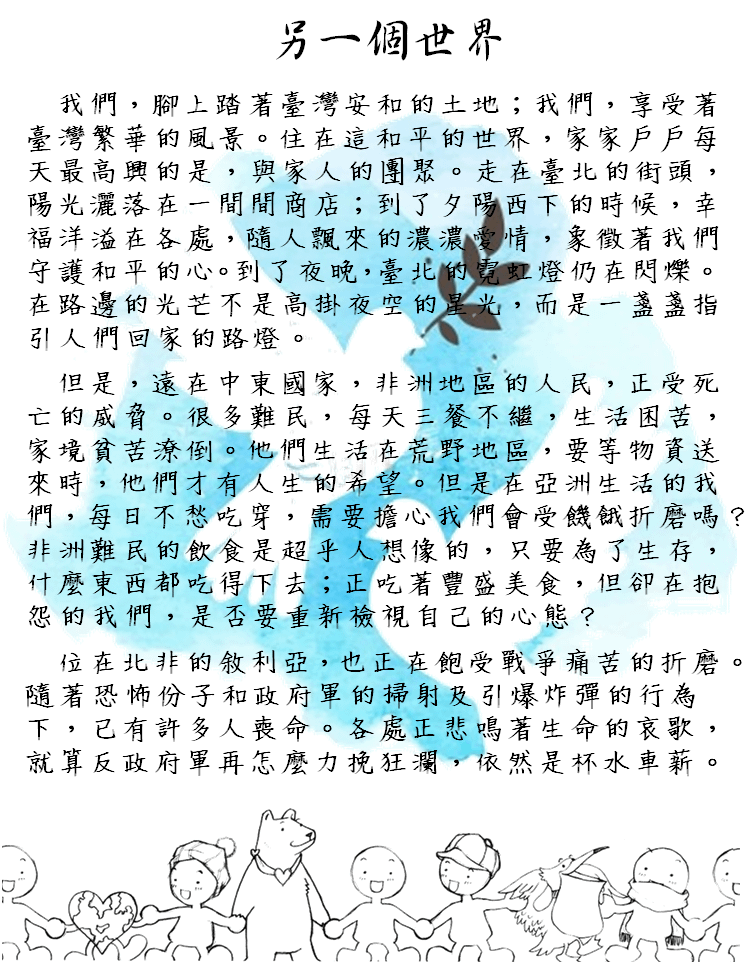 另一個世界
我們，腳上踏著臺灣安和的土地；我們，享受著
臺灣繁華的風景。住在這和平的世界，家家戶戶每
天最高興的是，與家人的團聚。走在臺北的街頭，
陽光灑落在一間間商店；到了夕陽西下的時候，幸
福洋溢在各處，隨人飄來的濃濃愛情，象徵著我們
守護和平的心。到了夜晚，臺北的霓虹燈仍在閃爍。
在路邊的光芒不是高掛夜空的星光，而是一盞盞指
引人們回家的路燈。
但是，遠在中東國家，非洲地區的人民，正受死
亡的威脅。很多難民，每天三餐不繼，生活困苦，
家境貧苦潦倒。他們生活在荒野地區，要等物資送
來時，他們才有人生的希望。但是在亞洲生活的我
們，每日不愁吃穿，需要擔心我們會受饑餓折磨嗎？
非洲難民的飲食是超乎人想像的，只要為了生存，
什麼東西都吃得下去；正吃著豐盛美食，但卻在抱
怨的我們，是否要重新檢視自己的心態？
位在北非的敘利亞，也正在飽受戰爭痛苦的折磨。
隨著恐怖份子和政府軍的掃射及引爆炸彈的行為
下，已有許多人喪命。各處正悲鳴著生命的哀歌，
就算反政府軍再怎麼力挽狂瀾，依然是杯水車薪。